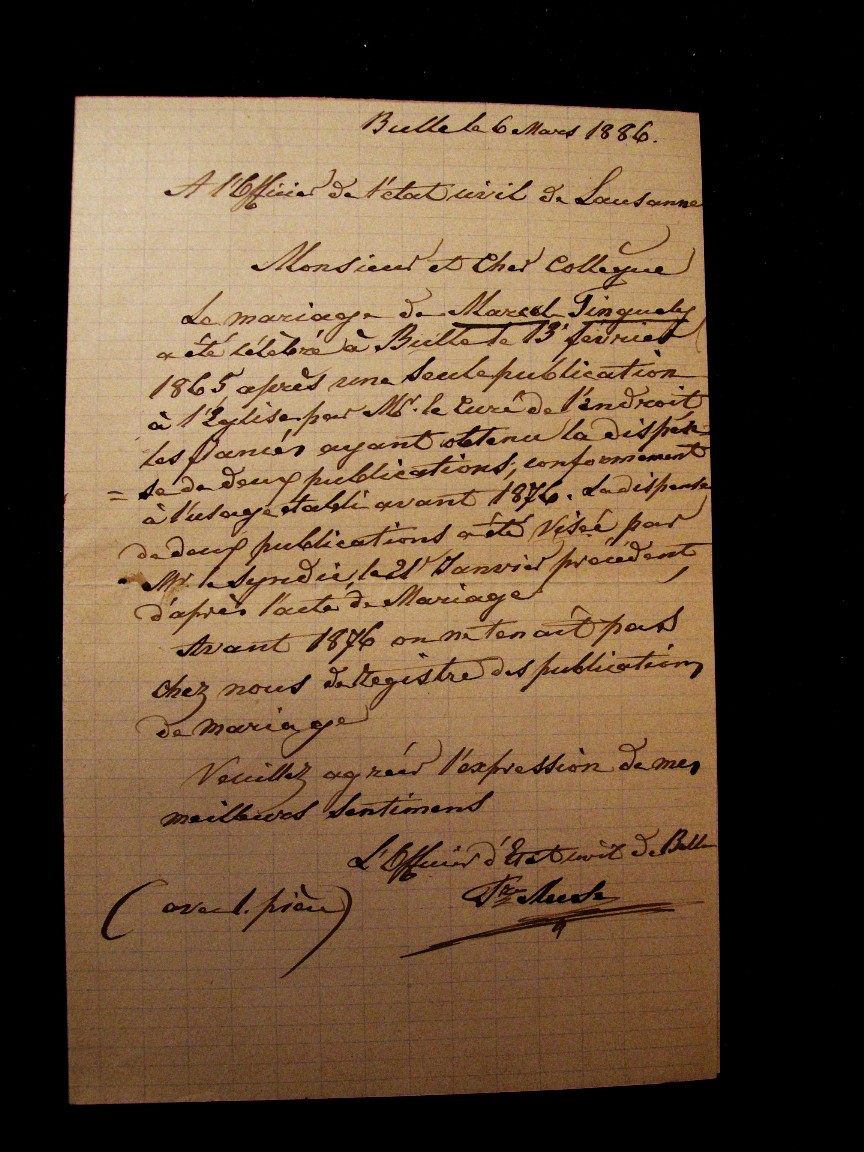 Bulle le 6 Mars 1886.
A l'Officier de l'état civil de Lausanne
Monsieur et Cher Collègue
Le mariage de Marcel Tinguely
a été célébré à Bulle le 13 février
1865 après une seule publication
à l'Eglise par Mr. le Curé de l'endroit
les fiancés ayant obtenu la dispen=
= se de deux publications, conformément
à l'usage établi avant 1876. La dispense
de deux publications a été visée par
Mr. le syndic, le 21 Janvier précédent,
d'après l'acte de Mariage
Avant 1876 on ne tenait pas
chez nous de Registre des publications
de mariage
Veuillez agréer l'expression de mes
meilleurs sentimens
L'Officier d'Etat civil de Bulle
(avec 1. pièce)